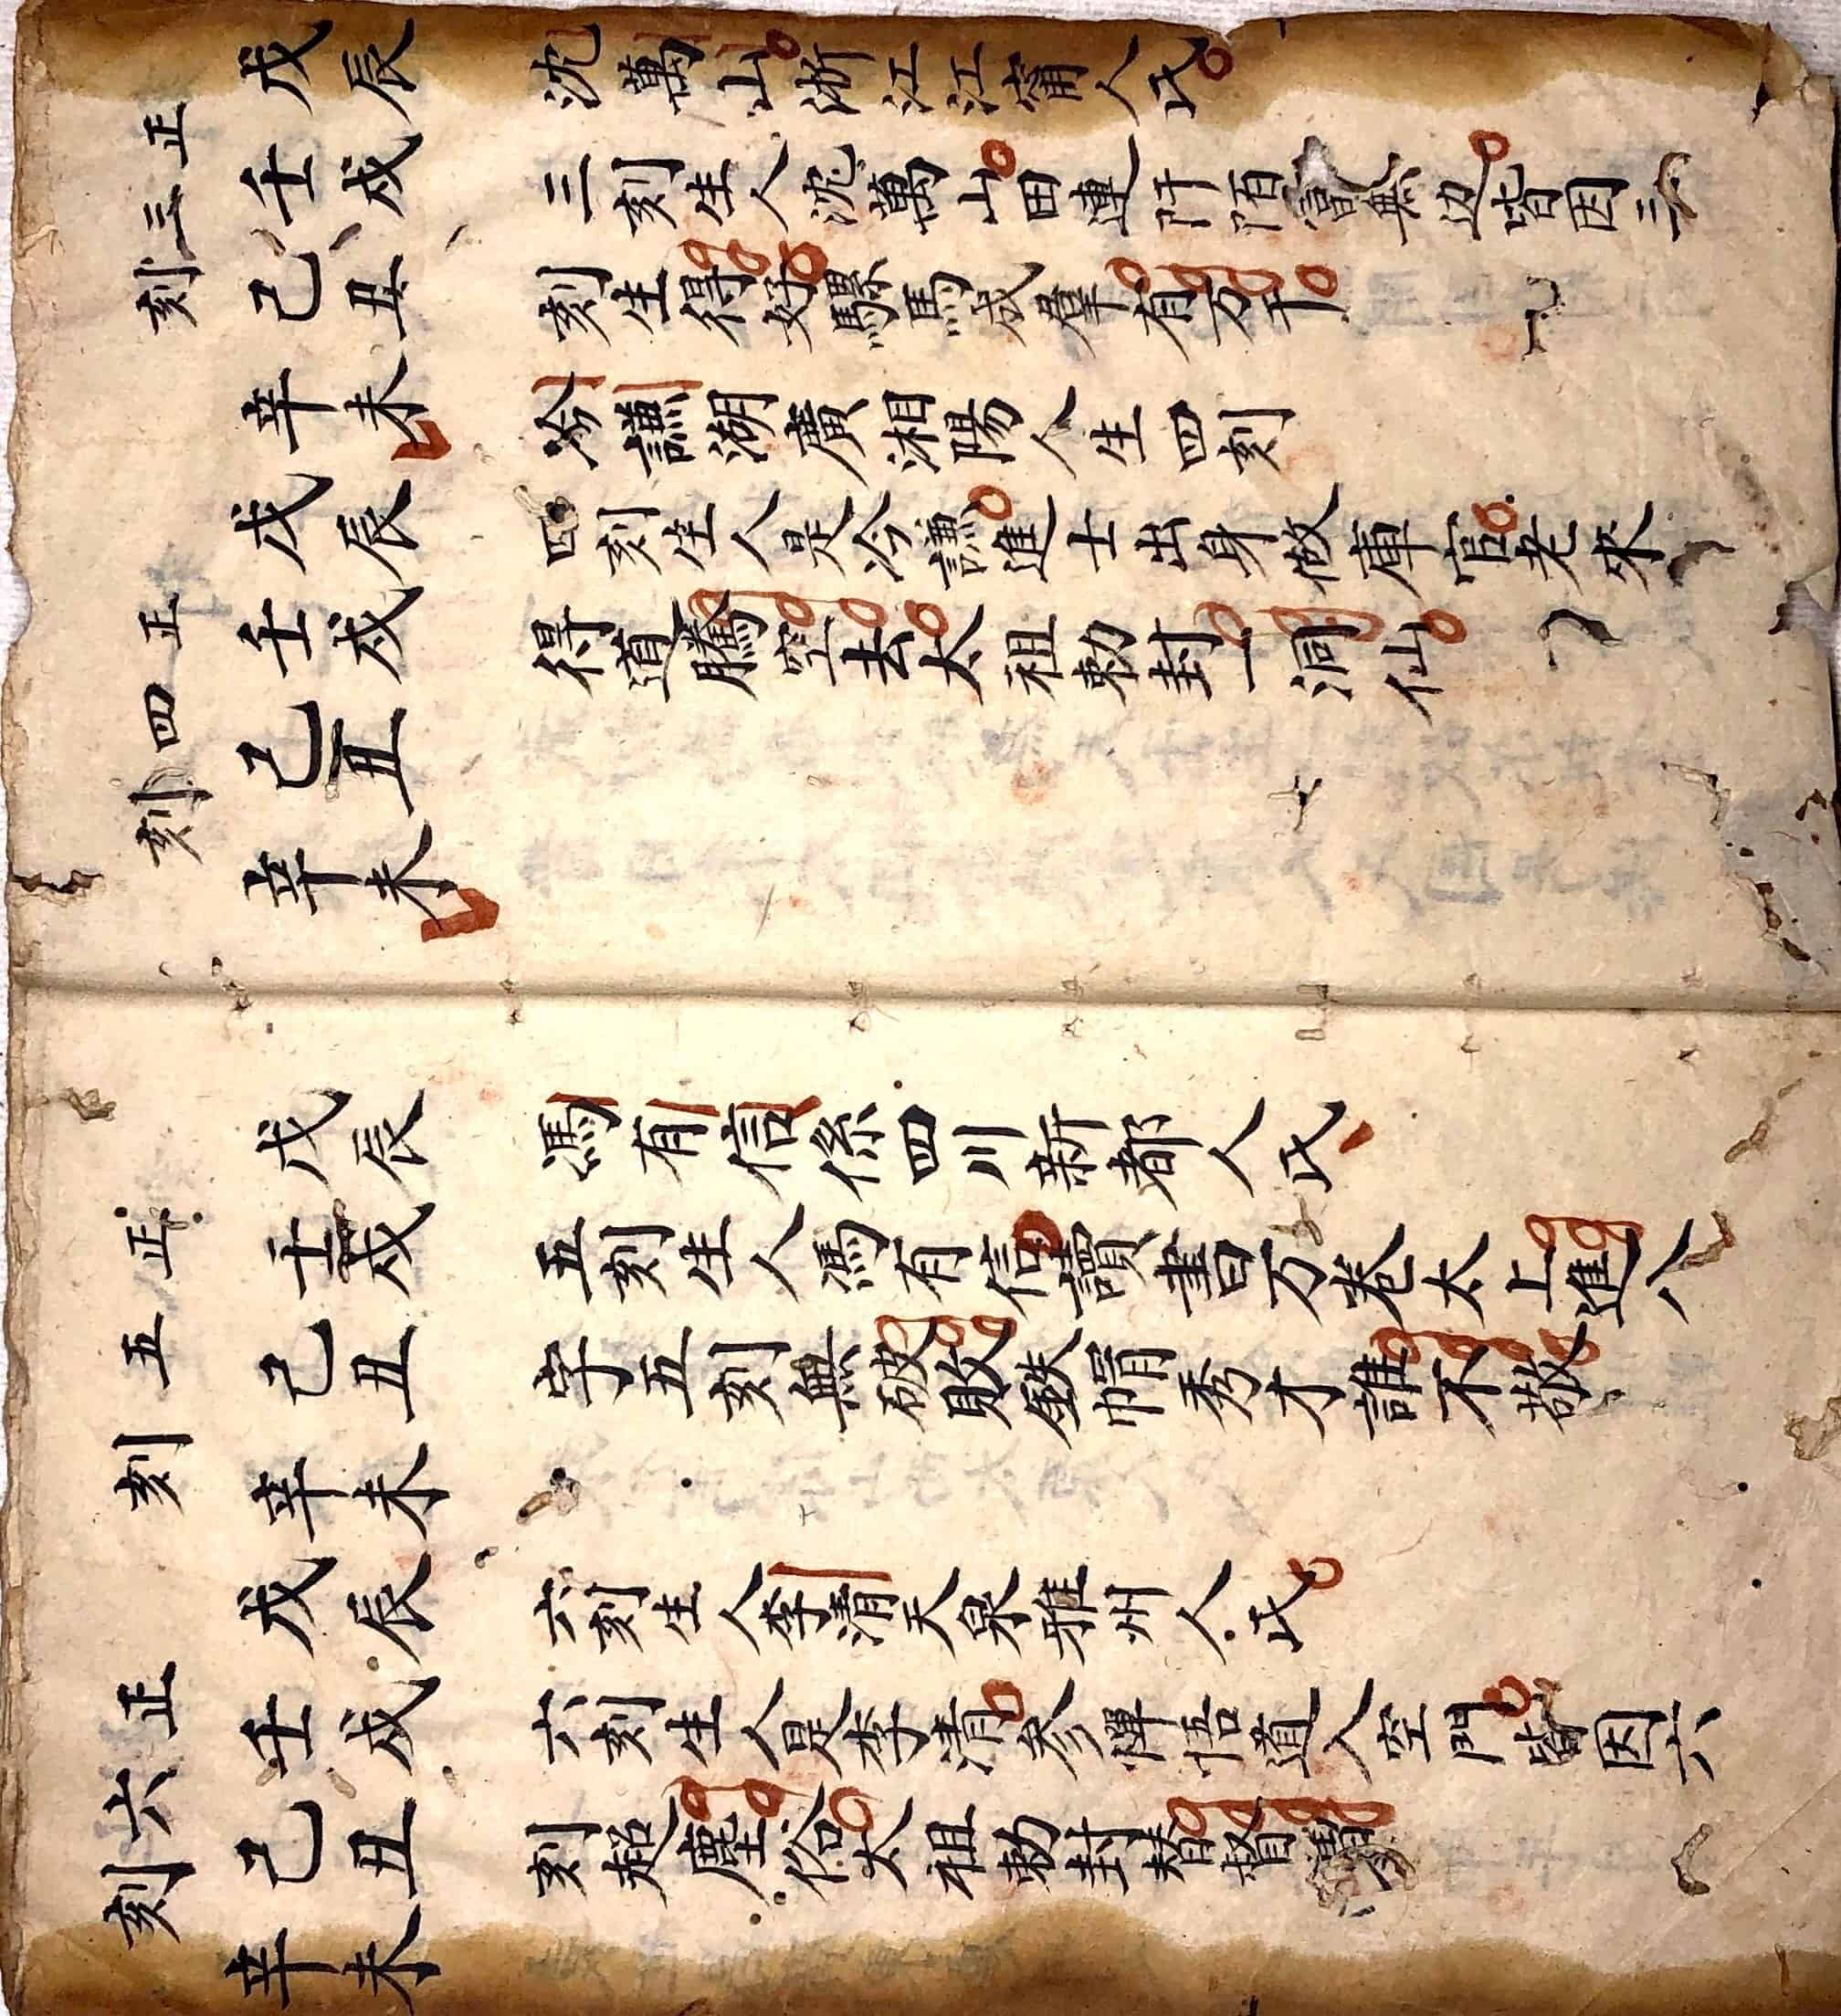 正三刻
戊壬己辛
辰戌丑未
沈萬山浙江江甯人氏
三刻生人沈萬山田連阡陌富無边皆因三
刻生得好騾馬成羣有万千
正四刻
戊壬己辛
辰戌丑未
冷謙湖廣湘陽人生四刻
四刻生人是冷謙進士出身做庫官老來
得道騰空去太祖勅封一洞仙
正五刻
戊壬己辛
辰戌丑未
馮有信係四川新都人氏
五刻生人馮有信讀書万卷太上進八
字五刻無破敗鉄帽秀才誰不敬
正六刻
戊壬己辛
辰戌丑未
六刻生人李清天泉雅州人氏
六刻生人是李清參禪悟道入空門皆因六
刻超塵俗太祖勅封替督